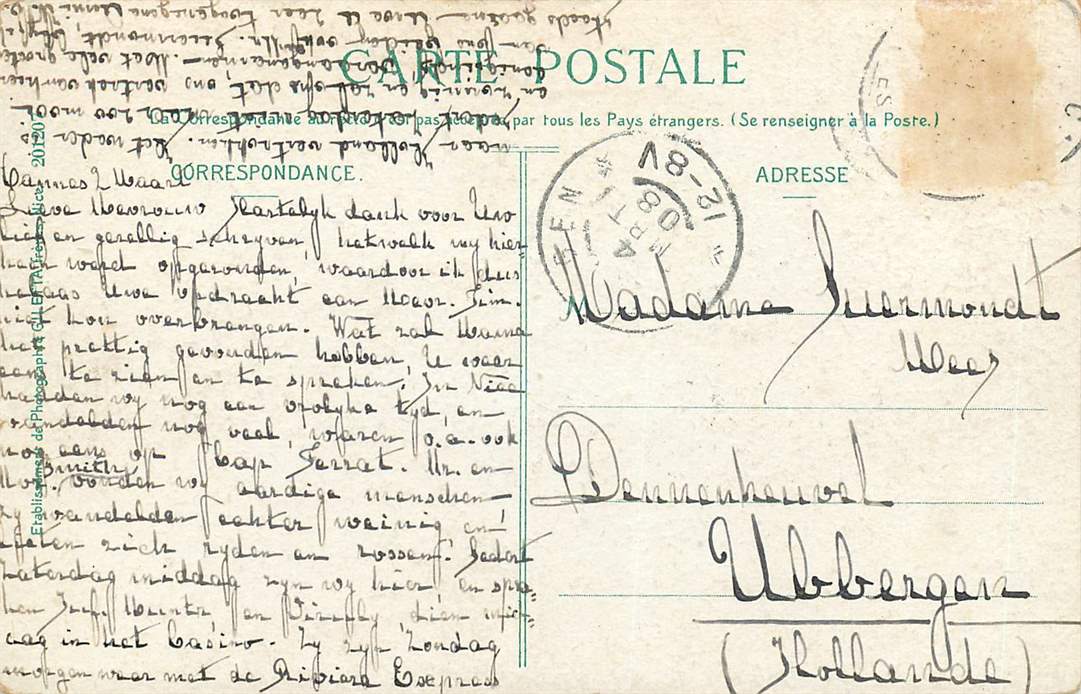 CARTE POSTALE
La Correspondance au recto n'est pas acceptée par tous les Pays étrangers. (Se renseigner à la Poste.)
CORRESPONDANCE.
ADRESSE
Etablissement de Photographie GILLETTA frères Nice. 20120
Cannes 2 Maart
Lieve Mevrouw Hartelyk dank voor Uw
lief en gezellig schryven, hetwelk wy hier-
heen werd opgezonden, waardoor ik dus
helaas Uwe opdracht aan Mevr. Sim.
niet kon overbrengen. Wat zal Mama
het prettig gevonden hebben, U weer
eens te zien en te spreken; In Nice
hadden wy nog een vrolyke tyd, en
wandelden nog veel, waren o.a. ook
nog eens op Cap Ferrat. Mr. en
Mevr. Smith vonden wy aardige menschen
zy wandelden echter weinig en
lieten zich ryden en rossen. Sedert
Zaterdag middag zyn wy hier, en spra-
ken Juf. Munter, en Pirefly, dien mid-
dag in het Casino. Zy zyn Zondag
morgen weer met de Riviera Express
naar Holland vertrokken. Het weder is
en zonnig en zal ons dat vertrek van hier
Met vele groeten
Suermondt,
steeds gaarne Uwe
Madame Suermondt
Wees
Dennenheuvel
Ubbergen
(Hollande)
EEN
4 MRT
08
12-8V